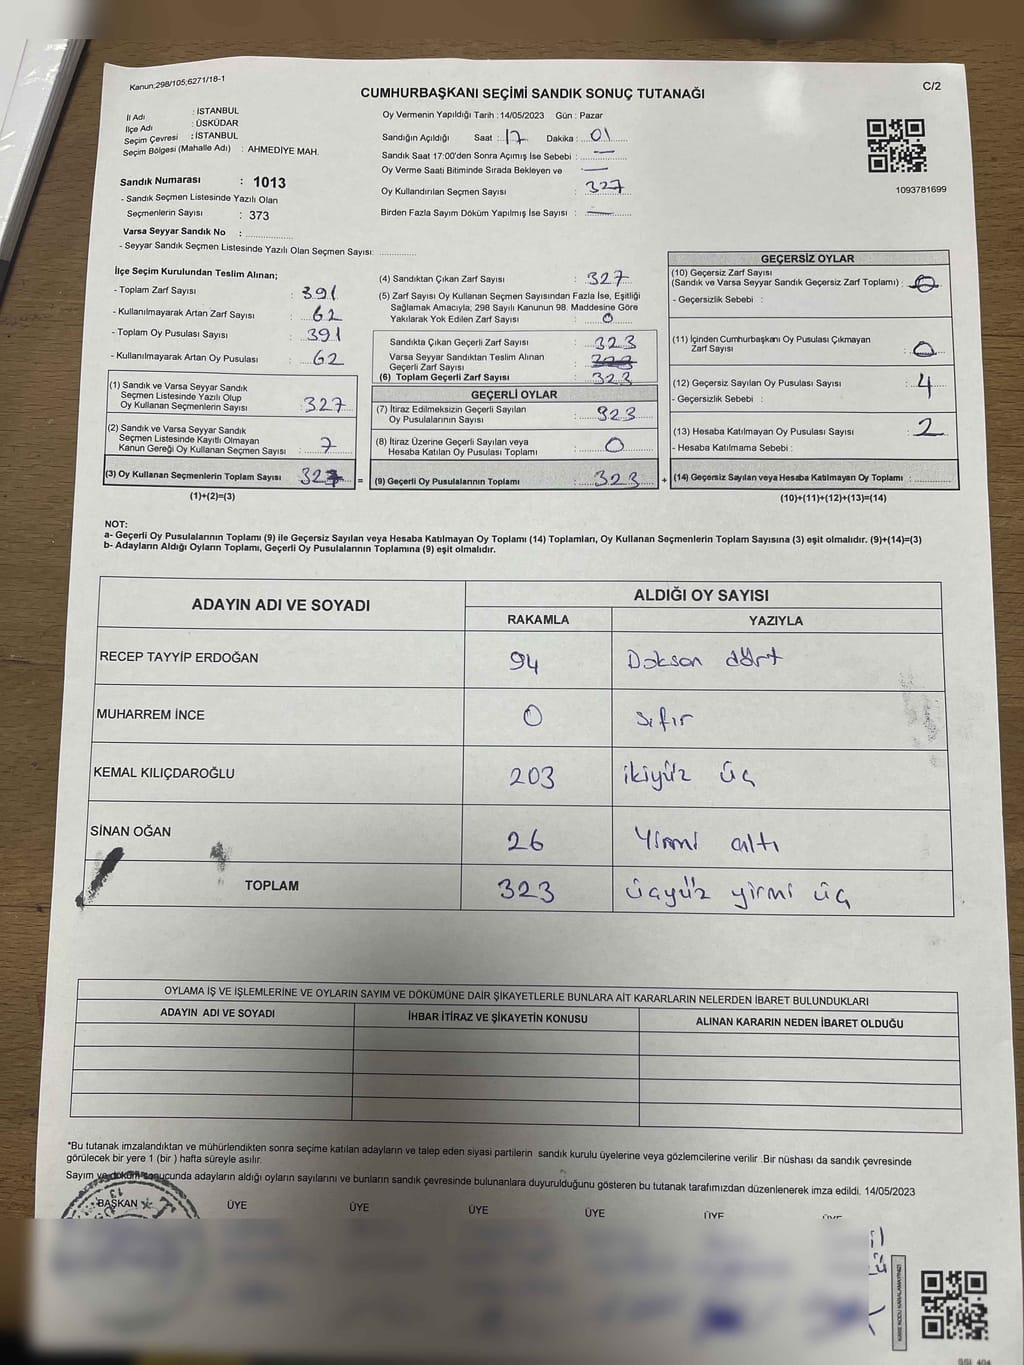 Kanun;298/105;6271/18-1
CUMHURBAŞKANI SEÇİMİ SANDIK SONUÇ TUTANAĞI
C/2
İl Adı : İSTANBUL
İlçe Adı : ÜSKÜDAR
Seçim Çevresi : İSTANBUL
Seçim Bölgesi (Mahalle Adı) : AHMEDİYE MAH.
Sandık Numarası : 1013
- Sandık Seçmen Listesinde Yazılı Olan
Seçmenlerin Sayısı : 373
Varsa Seyyar Sandık No :
- Seyyar Sandık Seçmen Listesinde Yazılı Olan Seçmen Sayısı:
Oy Vermenin Yapıldığı Tarih : 14/05/2023 Gün : Pazar
Sandığın Açıldığı Saat : 17 Dakika : 01
Sandık Saat 17:00'den Sonra Açımış İse Sebebi : —
Oy Verme Saati Bitiminde Sırada Bekleyen ve : —
Oy Kullandırılan Seçmen Sayısı : 327
Birden Fazla Sayım Döküm Yapılmış İse Sayısı : —
1093781699
İlçe Seçim Kurulundan Teslim Alınan;
- Toplam Zarf Sayısı : 391
- Kullanılmayarak Artan Zarf Sayısı : 62
- Toplam Oy Pusulası Sayısı : 391
- Kullanılmayarak Artan Oy Pusulası : 62
(1) Sandık ve Varsa Seyyar Sandık
Seçmen Listesinde Yazılı Olup
Oy Kullanan Seçmenlerin Sayısı : 327
(2) Sandık ve Varsa Seyyar Sandık
Seçmen Listesinde Kayıtlı Olmayan
Kanun Gereği Oy Kullanan Seçmen Sayısı : 7
(3) Oy Kullanan Seçmenlerin Toplam Sayısı 327 =
(1)+(2)=(3)
(4) Sandıktan Çıkan Zarf Sayısı : 327
(5) Zarf Sayısı Oy Kullanan Seçmen Sayısından Fazla İse, Eşitliği
Sağlamak Amacıyla; 298 Sayılı Kanunun 98. Maddesine Göre
Yakılarak Yok Edilen Zarf Sayısı : 0
Sandıkta Çıkan Geçerli Zarf Sayısı : 323
Varsa Seyyar Sandıktan Teslim Alınan
Geçerli Zarf Sayısı :
(6) Toplam Geçerli Zarf Sayısı : 323
GEÇERLİ OYLAR
(7) İtiraz Edilmeksizin Geçerli Sayılan
Oy Pusulalarının Sayısı : 323
(8) İtiraz Üzerine Geçerli Sayılan veya
Hesaba Katılan Oy Pusulası Toplamı : 0
(9) Geçerli Oy Pusulalarının Toplamı : 323 +
GEÇERSİZ OYLAR
(10) Geçersiz Zarf Sayısı
(Sandık ve Varsa Seyyar Sandık Geçersiz Zarf Toplamı) :
- Geçersizlik Sebebi :
(11) İçinden Cumhurbaşkanı Oy Pusulası Çıkmayan
Zarf Sayısı : 0
(12) Geçersiz Sayılan Oy Pusulası Sayısı : 4
- Geçersizlik Sebebi :
(13) Hesaba Katılmayan Oy Pusulası Sayısı : 2
- Hesaba Katılmama Sebebi :
(14) Geçersiz Sayılan veya Hesaba Katılmayan Oy Toplamı :
(10)+(11)+(12)+(13)=(14)
NOT:
a- Geçerli Oy Pusulalarının Toplamı (9) ile Geçersiz Sayılan veya Hesaba Katılmayan Oy Toplamı (14) Toplamları, Oy Kullanan Seçmenlerin Toplam Sayısına (3) eşit olmalıdır. (9)+(14)=(3)
b- Adayların Aldığı Oyların Toplamı, Geçerli Oy Pusulalarının Toplamına (9) eşit olmalıdır.
ADAYIN ADI VE SOYADI ALDIĞI OY SAYISI
RAKAMLA YAZIYLA
RECEP TAYYİP ERDOĞAN 94 Doksan dört
MUHARREM İNCE 0 sıfır
KEMAL KILIÇDAROĞLU 203 ikiyüz üç
SİNAN OĞAN 26 Yirmi altı
TOPLAM 323 üçyüz yirmi üç
OYLAMA İŞ VE İŞLEMLERİNE VE OYLARIN SAYIM VE DÖKÜMÜNE DAİR ŞİKAYETLERLE BUNLARA AİT KARARLARIN NELERDEN İBARET BULUNDUKLARI
ADAYIN ADI VE SOYADI İHBAR İTİRAZ VE ŞİKAYETİN KONUSU ALINAN KARARIN NEDEN İBARET OLDUĞU
*Bu tutanak imzalandıktan ve mühürlendikten sonra seçime katılan adayların ve talep eden siyasi partilerin sandık kurulu üyelerine veya gözlemcilerine verilir .Bir nüshası da sandık çevresinde
görülecek bir yere 1 (bir ) hafta süreyle asılır.
Sayım ve döküm sonucunda adayların aldığı oyların sayılarını ve bunların sandık çevresinde bulunanlara duyurulduğunu gösteren bu tutanak tarafımızdan düzenlenerek imza edildi. 14/05/2023
BAŞKAN ÜYE ÜYE ÜYE ÜYE ÜYE ÜYE